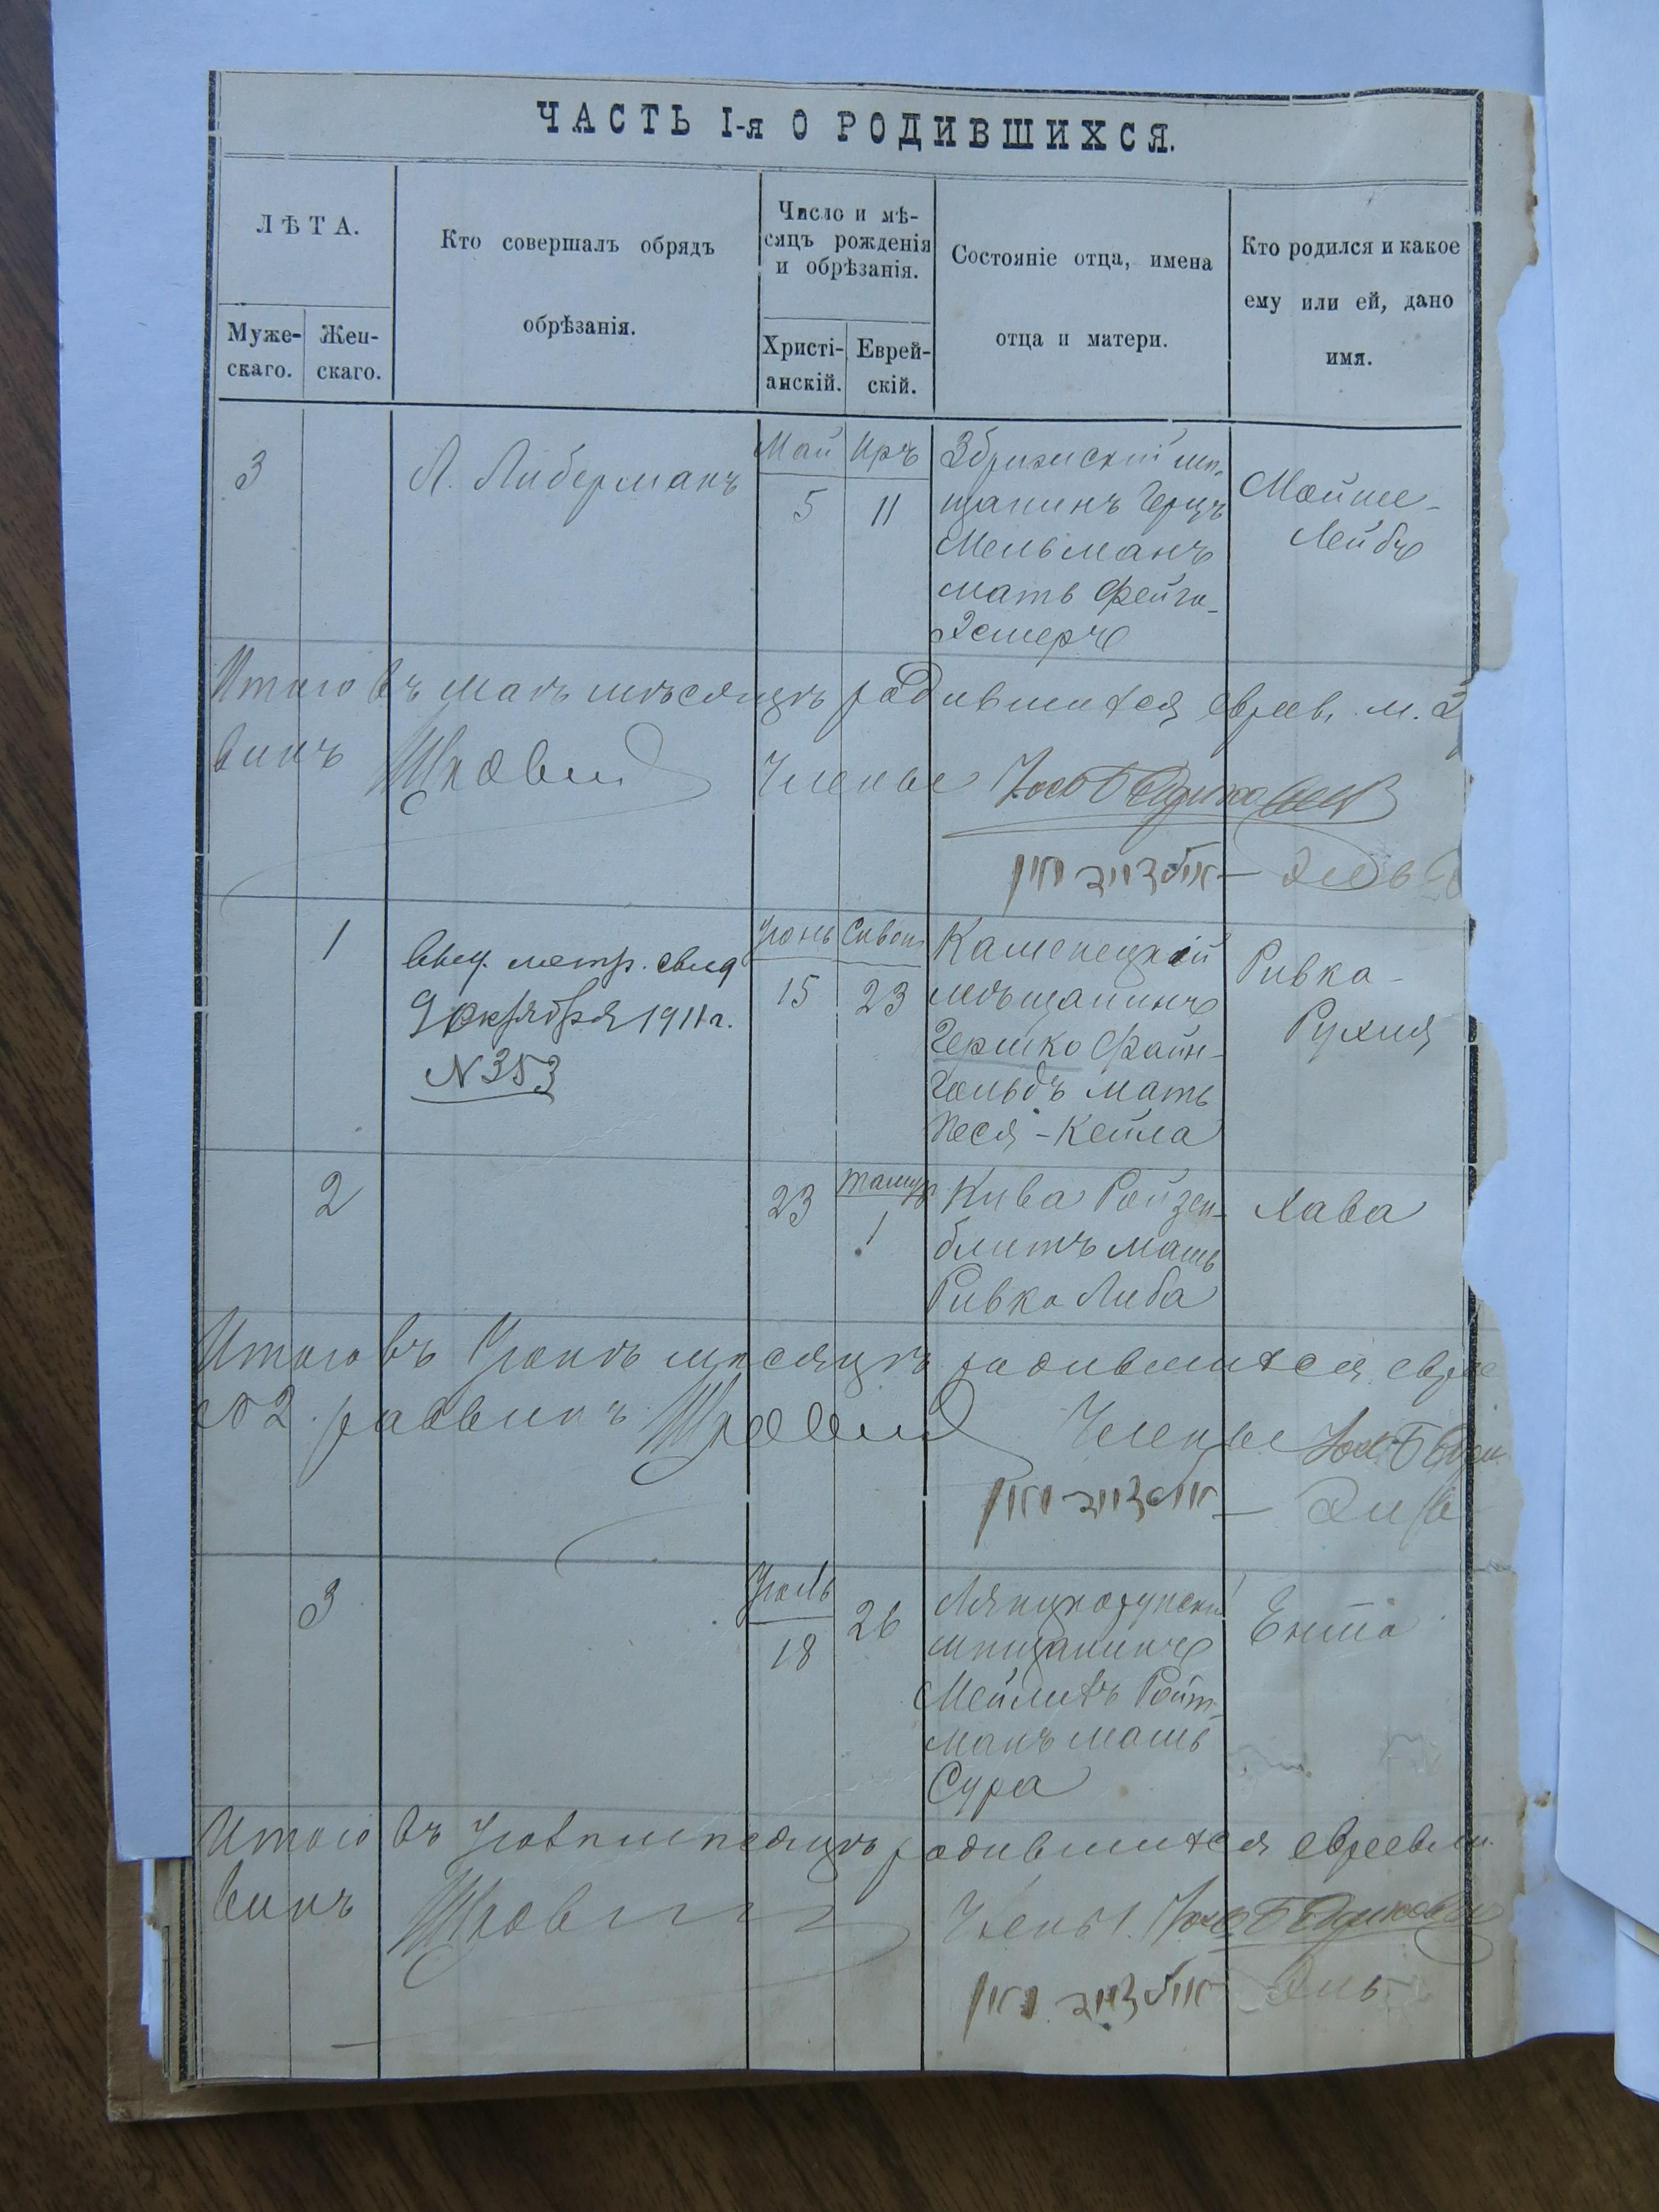 ЧАСТЬ I-я О РОДИВШИХСЯ.
ЛѢТА.
Муже-
скаго.
Жен-
скаго.
Кто совершалъ обрядъ
обрѣзанія.
Число и мѣ-
сяцъ рожденія
и обрѣзанія.
Христі-
анскій.
Еврей-
скій.
Состояніе отца, имена
отца и матери.
Кто родился и какое
ему или ей, дано
имя.
3
Л. Либерманъ
Май
5
Иръ
11
Збрижскій мѣ-
щанинъ Герцъ
Мельманъ
мать Фейга-
Эстеръ
Мойше-
Лейбъ
Итого въ маѣ мѣсяцѣ родившихся еврее. м. 3
винъ
Члены
1
Выд. метр. свид
9 Октября 1911 г.
N 353
Іюнь
15
Сиванъ
23
Каменецкій
мѣщанинъ
Гершко Файн-
гольдъ мать
Песя-Кейла
Ривка-
Рухля
2
23
Тамуз
1
Кива Ройзен-
блитъ мать
Ривка Либа
Хава
Итого въ Іюнѣ мѣсяцѣ родившихся евре
2. раввинъ
Члены
3
Іюль
18
26
Лянцкорунскій
мѣщанинъ
Мейлихъ Ройт-
манъ мать
Сура
Ента
Итого въ Іюлѣ мѣсяцѣ родившихся евреев
винъ
Члены